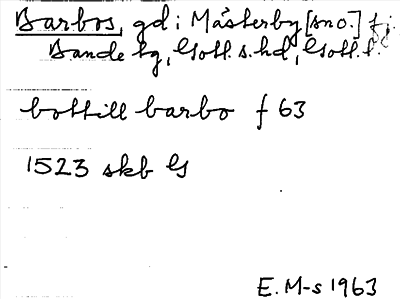 Barbos, gd i Mästerby [sno.] f;
Bande tg, Gotl. s. hd, Gotl. l.
bottill barbo f 63
1523 skb G
E. M-s 1963